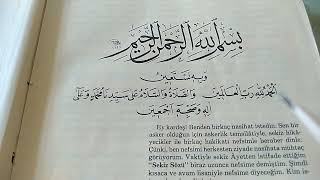 بِسْمِ اللّٰهِ الرَّحْمٰنِ الرَّحِيمِ
وَبِهِ نَسْتَعِينُ
اَلْحَمْدُ لِلّٰهِ رَبِّ الْعَالَمِينَ وَالصَّلَاةُ وَالسَّلَامُ عَلَى سَيِّدِنَا مُحَمَّدٍ وَعَلَى
اٰلِهِ وَصَحْبِهِ اَجْمَعِينَ
Ey kardeş! Benden birkaç nasihat istedin. Sen bir
asker olduğun için askerlik temsilâtıyle, sekiz hikâ-
yecikler ile birkaç hakikati nefsimle beraber dinle.
Çünki ben nefsimi herkesten ziyade nasihata muhtaç
görüyorum. Vaktiyle sekiz Âyetten istifade ettiğim
"Sekiz Sözü" biraz uzunca nefsime demiştim. Şimdi
kısaca ve avam lisaniyle nefsime diyeceğim. Kim